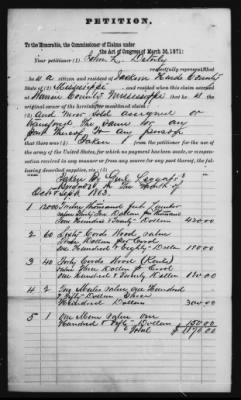 PETITION.
To the Honorable, the Commissioner of Claims under
the Act of Congress of March 3d, 1871:
Your petitioner (1) John L.
respectfully represents that
he is a citizen and resident of Jackson Hinds County
Mississippi, and resided when this claim accrued
County Mississippi that he is
original owner of the hereinafter mentioned claim
(2) And never sold assigned or
transferred the same nor any
part thereof to any person
(3) Taken from the petitioner for the use of the
army of the United States for which no payment has been made, or compensation
received in any manner or from any source for any part thereof, the following
described supplies, viz:
Taken by Genl
in the Month of
1863.
1 12000 Twelve thousand feet Lumber
value Thirty five Dollars per thousand
Four Hundred & Twenty Dollars 420.00
2 60 Cords Wood, value
Three Dollars per Cord
One Hundred & Eighty Dollars 180.00
3 40 Forty Cords Wood (Rails)
value Three Dollars per Cord
One hundred & Twenty Dollars
4 2 Two Mules value One Hundred
& Fifty Dollars
Hundred Dollars 300.00
5 1 One Mare value One
Hundred & Fifty Dollars 150.00
$1170.00